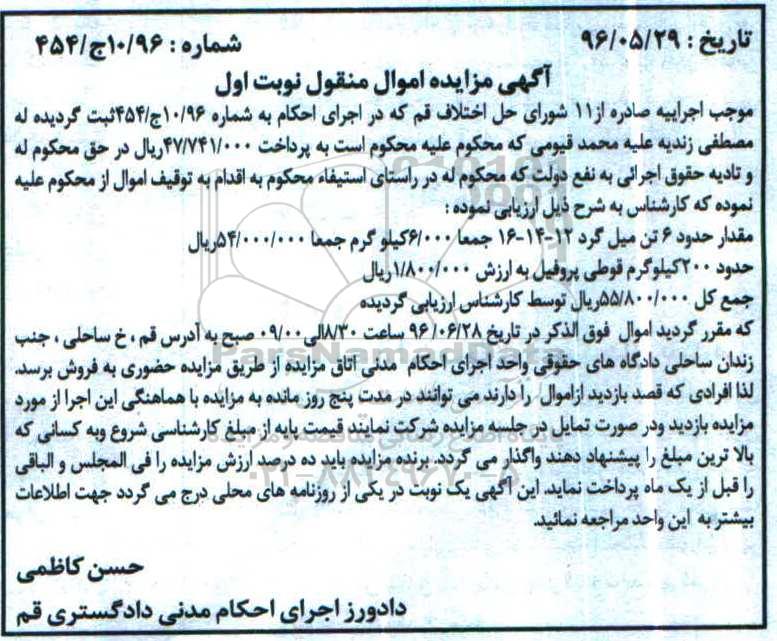 تاریخ : ۹۶/۰۵/۲۹
شماره : ۱۰/۹۶ج/۴۵۴
آگهی مزایده اموال منقول نوبت اول
موجب اجراییه صادره از۱۱ شورای حل اختلاف قم که در اجرای احکام به شماره ۱۰/۹۶ج/۴۵۴ثبت گردیده له
مصطفی زندیه علیه محمد قیومی که محکوم علیه محکوم است به پرداخت ۴۷/۷۴۱/۰۰۰ریال در حق محکوم له
و تادیه حقوق اجرائی به نفع دولت که محکوم له در راستای استیفاء محکوم به اقدام به توقیف اموال از محکوم علیه
نموده که کارشناس به شرح ذیل ارزیابی نموده :
مقدار حدود ۶ تن میل گرد ۱۲-۱۴-۱۶ جمعا ۶/۰۰۰کیلو گرم جمعا ۵۴/۰۰۰/۰۰۰ریال
حدود ۲۰۰کیلوگرم قوطی پروفیل به ارزش ۱/۸۰۰/۰۰۰ریال
جمع کل ۵۵/۸۰۰/۰۰۰ریال توسط کارشناس ارزیابی گردیده
که مقرر گردید اموال فوق الذکر در تاریخ ۹۶/۰۶/۲۸ ساعت ۸/۳۰الی۰۹/۰۰ صبح به آدرس قم ، خ ساحلی ، جنب
زندان ساحلی دادگاه های حقوقی واحد اجرای احکام مدنی اتاق مزایده از طریق مزایده حضوری به فروش برسد.
لذا افرادی که قصد بازدید ازاموال را دارند می توانند در مدت پنج روز مانده به مزایده با هماهنگی این اجرا از مورد
مزایده بازدید ودر صورت تمایل در جلسه مزایده شرکت نمایند قیمت پایه از مبلغ کارشناسی شروع وبه کسانی که
بالا ترین مبلغ را پیشنهاد دهند واگذار می گردد. برنده مزایده باید ده درصد ارزش مزایده را فی المجلس و الباقی
را قبل از یک ماه پرداخت نماید. این آگهی یک نوبت در یکی از روزنامه های محلی درج می گردد جهت اطلاعات
بیشتر به این واحد مراجعه نمائید.
حسن کاظمی
دادورز اجرای احکام مدنی دادگستری قم
ParsNamadData